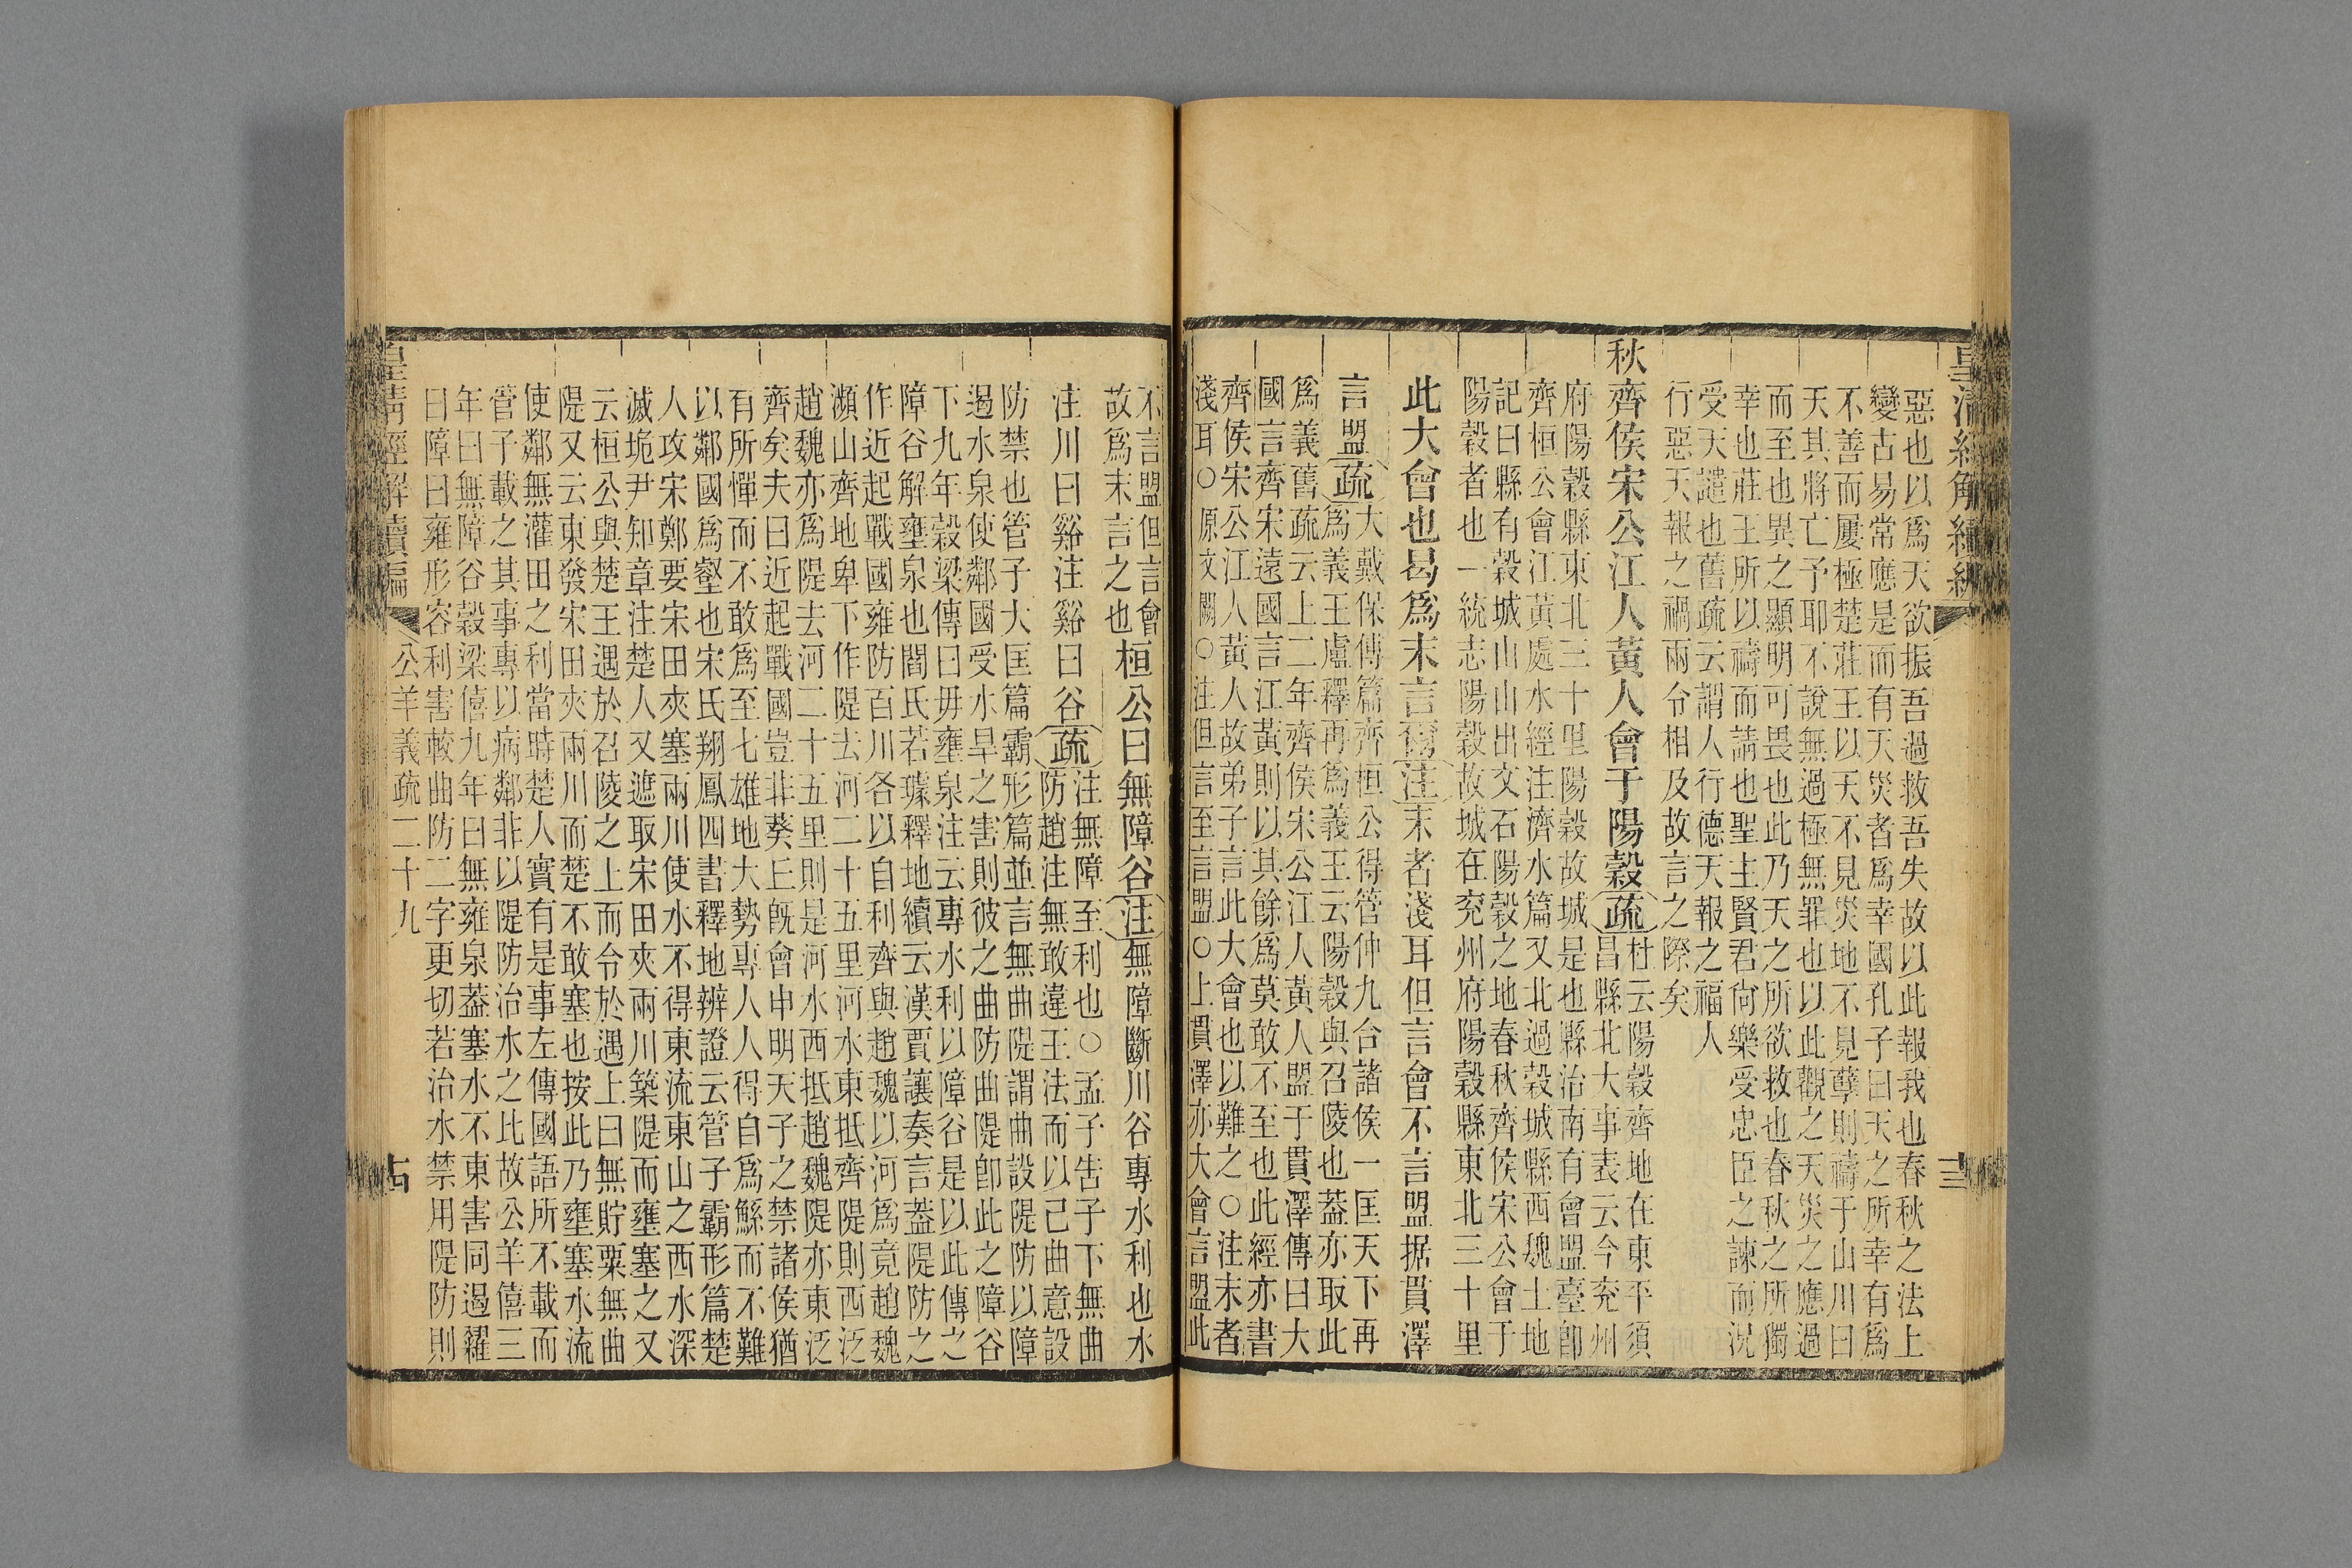 皇清經解續編
十三
惡也以爲天欲振吾過救吾失故以此報我也春秋之法上
變古易常應是而有天災者爲幸國孔子曰天之所幸有爲
不善而屢極楚莊王以天不見災地不見孽則禱于山川曰
天其將亡予耶不說無過極無罪也以此觀之天災之應過
而至也異之顯明可畏也此乃天之所欲救也春秋之所獨
幸也莊王所以禱而請也聖主賢君尙樂受忠臣之諫而況
受天譴也舊疏云謂人行德天報之福人
行惡天報之禍兩令相及故言之際矣
秋齊侯宋公江人黃人會于陽穀疏
杜云陽穀齊地在東平須
昌縣北大事表云今兖州
府陽穀縣東北三十里陽穀故城是也縣治南有會盟臺卽
齊桓公會江黃處水經注濟水篇又北過穀城縣西魏土地
記曰縣有穀城山山出文石陽穀之地春秋齊侯宋公會于
陽穀者也一統志陽穀故城在兖州府陽穀縣東北三十里
此大會也曷爲末言爾注末者淺耳但言會不言盟据貫澤
言盟疏
大戴保傅篇齊桓公得管仲九合諸侯一匡天下再
爲義王盧釋再爲義王云陽穀與召陵也葢亦取此
爲義舊疏云上二年齊侯宋公江人黃人盟于貫澤傳曰大
國言齊宋遠國言江黃則以其餘爲莫敢不至也此經亦書
齊侯宋公江人黃人故弟子言此大會也以難之○注末者
淺耳○原文闕○注但言至言盟○上貫澤亦大會言盟此
不言盟但言會
故爲末言之也
桓公曰無障谷注無障斷川谷專水利也水
注川曰谿注谿曰谷疏
注無障至利也○孟子吿子下無曲
防趙注無敢違王法而以己曲意設
防禁也管子大匡篇霸形篇並言無曲隄謂曲設隄防以障
遏水泉使鄰國受水旱之害則彼之曲防曲隄卽此之障谷
下九年穀梁傳曰毋壅泉注云專水利以障谷是以此傳之
障谷解壅泉也閻氏若璩釋地續云漢賈讓奏言葢隄防之
作近起戰國雍防百川各以自利齊與趙魏以河爲竟趙魏
瀕山齊地卑下作隄去河二十五里河水東抵齊隄則西泛
趙魏亦爲隄去河二十五里則是河水西抵趙魏隄亦東泛
齊矣夫曰近起戰國豈非葵丘旣會申明天子之禁諸侯猶
有所憚而不敢爲至七雄地大勢專人人得自爲鯀而不難
以鄰國爲壑也宋氏翔鳳四書釋地辨證云管子霸形篇楚
人攻宋鄭要宋田夾塞兩川使水不得東流東山之西水深
滅垝尹知章注楚人又遮取宋田夾兩川築隄而壅塞之又
云桓公與楚王遇於召陵之上而令於遇上曰無貯粟無曲
隄又云東發宋田夾兩川而楚不敢塞也按此乃壅塞水流
使鄰無灌田之利當時楚人實有是事左傳國語所不載而
管子載之其事專以病鄰非以隄防治水之比故公羊僖三
年曰無障谷穀梁僖九年曰無雍泉葢塞水不東害同遏糴
曰障曰雍形容利害較曲防二字更切若治水禁用隄防則
皇清經解續編
公羊義疏二十九
十四